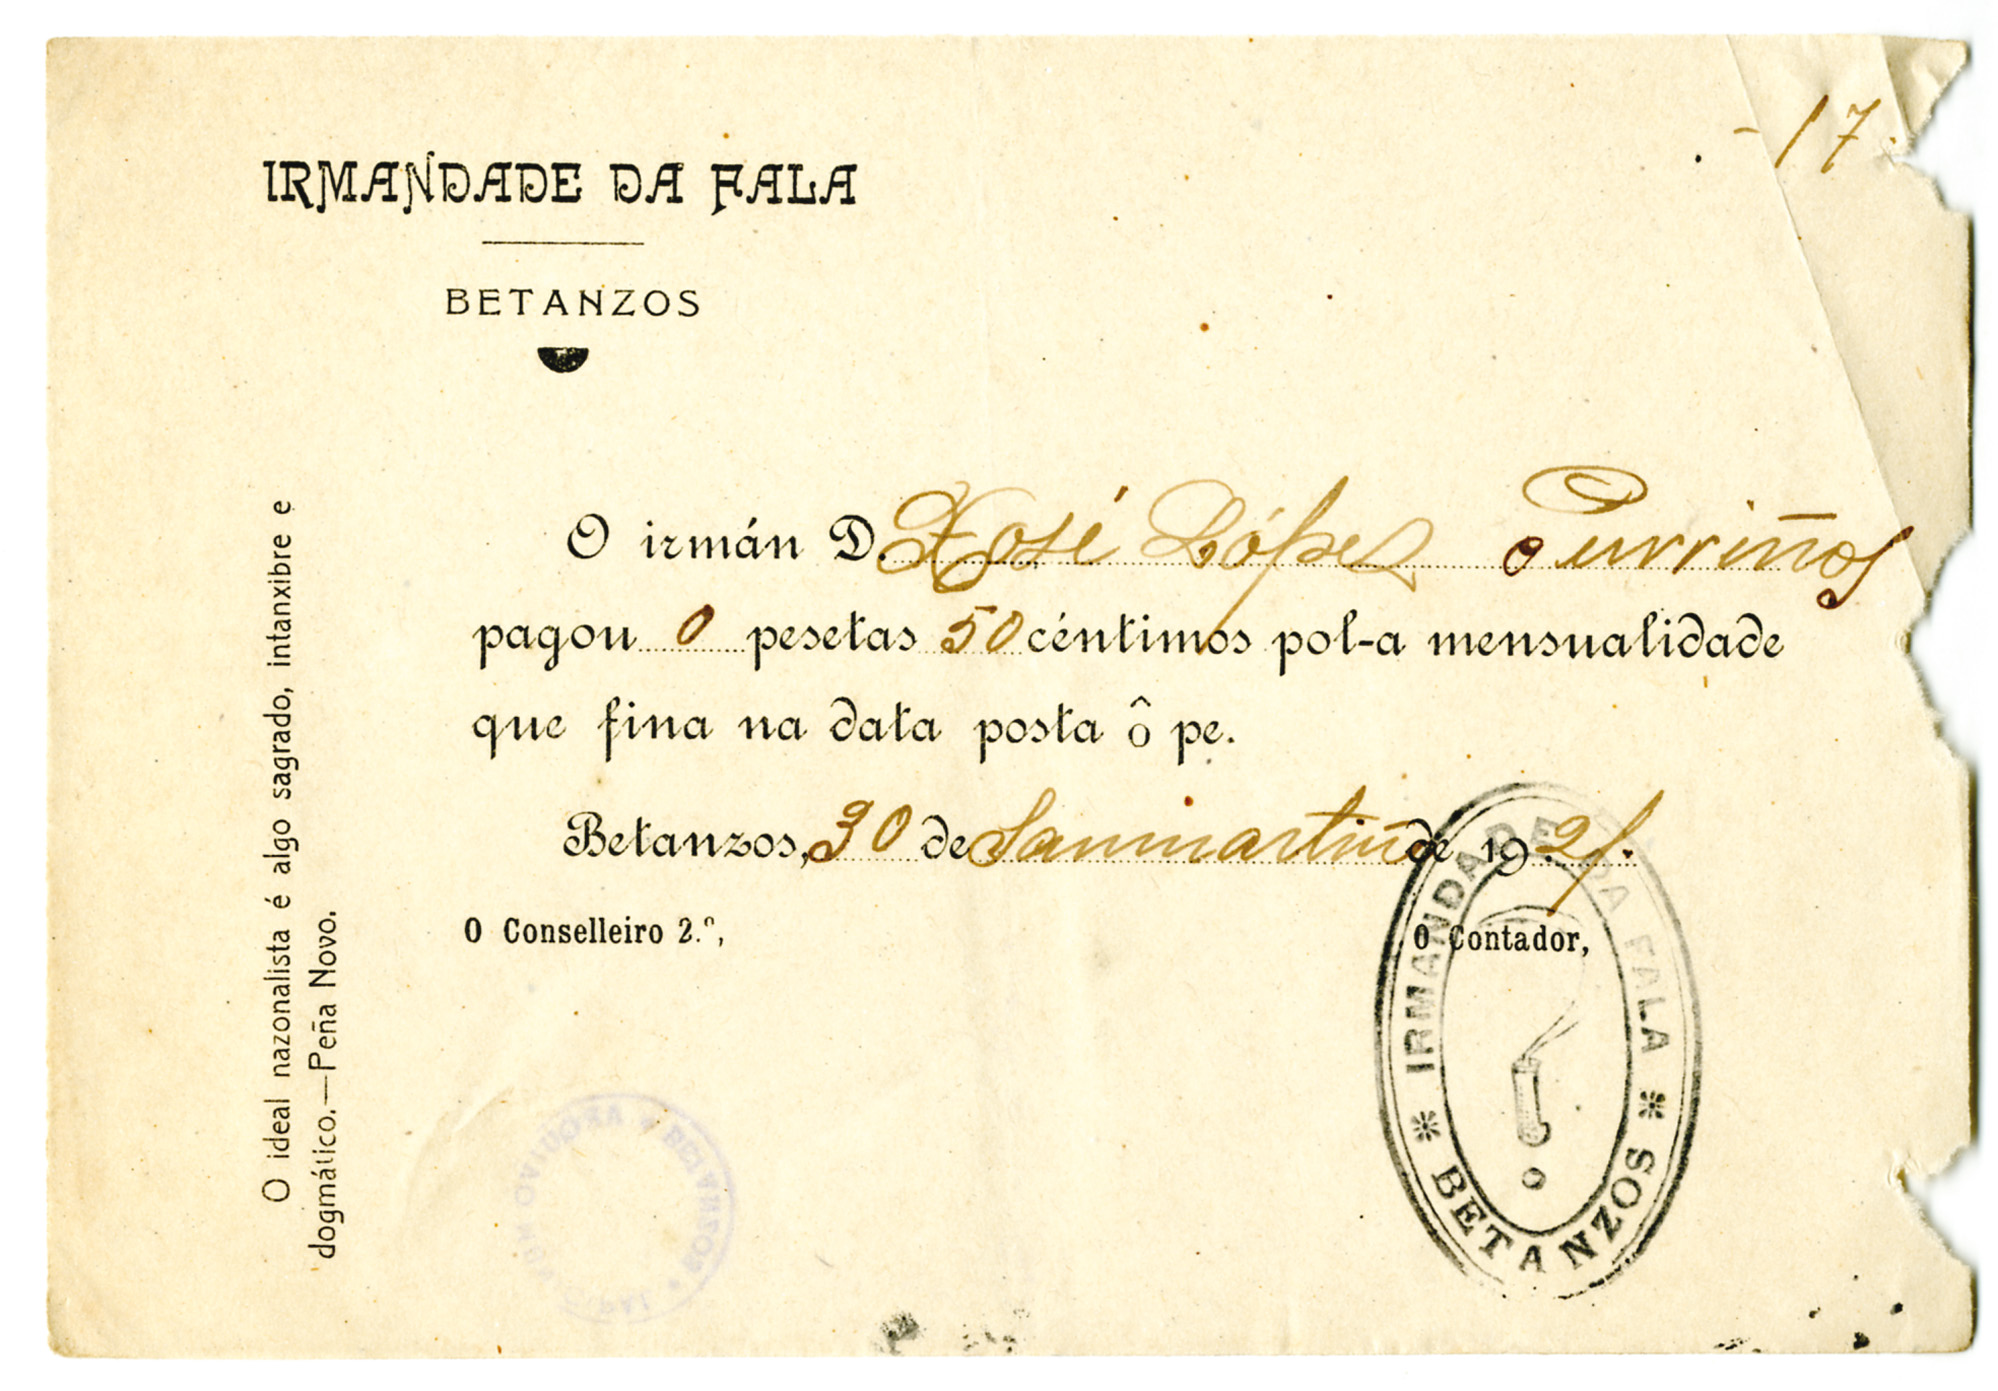 - 17.
IRMANDADE DA FALA
BETANZOS
O irmán D. Xosé López Purriños
pagou 0 pesetas 50 céntimos pol-a mensualidade
que fina na data posta ô pe.
Betanzos, 30 de Sanmartiño de 1921.
O Conselleiro 2.º,
O Contador,
O ideal nazonalista é algo sagrado, intanxibre e
dogmático.—Peña Novo.
* IRMANDADE DA FALA *
BETANZOS